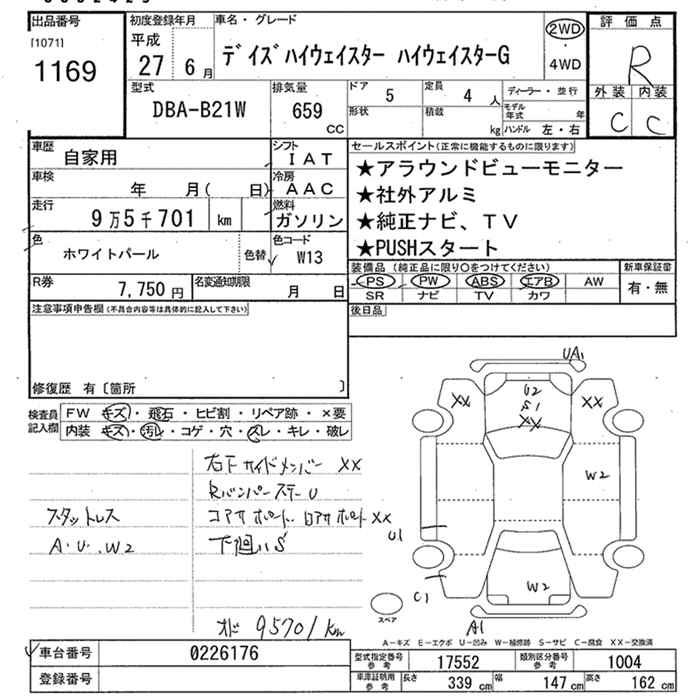 出品番号
[1071]
1169
初度登録年月
平成
27 6月
車名・グレード
デイズハイウェイスター ハイウェイスターG
2WD
・
4WD
評価点
R
外装 内装
C C
型式
DBA-B21W
排気量
659
CC
ドア
5
定員
4 人
形状
積載
kg
ディーラー・並行
モデル年式 年
ハンドル 左・右
車歴
自家用
シフト
IAT
車検
年 月( 日)
冷房
AAC
走行
9万5千701 km
燃料
ガソリン
色
ホワイトパール
色替
色コード
W13
R券
7,750 円
名変通知期限
月 日
セールスポイント(正常に機能するものに限ります)
★アラウンドビューモニター
★社外アルミ
★純正ナビ、TV
★PUSHスタート
装備品(純正品に限り○をつけてください)
PS PW ABS エアB AW
SR ナビ TV カワ
新車保証書
有・無
後日品
注意事項申告欄(不具合内容等は具体的に記入して下さい)
修復歴 有〔箇所 〕
検査員記入欄
FW キズ・飛石・ヒビ割・リペア跡・×要
内装 キズ・汚レ・コゲ・穴・スレ・キレ・破レ
右下サイドメンバー XX
Rバンパーステー U
スタットレス
コアサポート、ロアサポートXX
A・U・W2
下廻りS
オド 95701km
UA1
U2
S1
XX
XX
XX
W2
U1
W2
C1
A1
スペア
A-キズ E-エクボ U-凹み W-補修跡 S-サビ C-腐食 XX-交換済
車台番号
0226176
登録番号
型式指定番号 参考
17552
類別区分番号 参考
1004
車庫証明用 参考
長さ 339 cm
幅 147 cm
高さ 162 cm